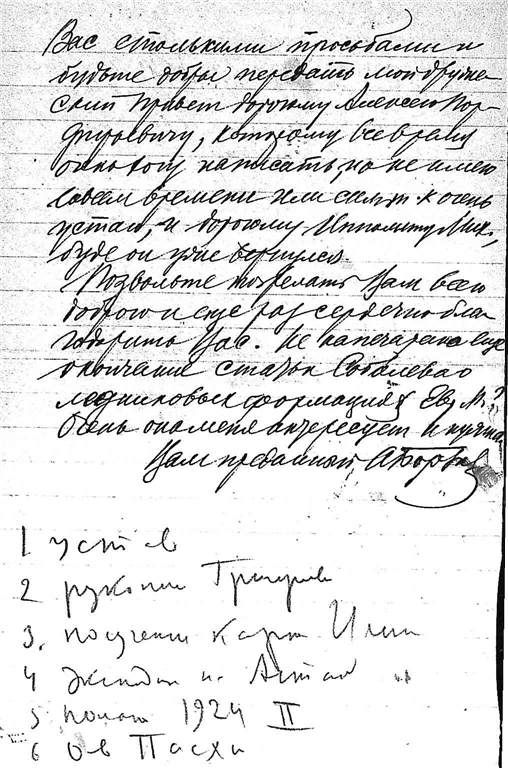 Вас столькими просьбами и
будьте добры передать мой друже-
ский привет дорогому Алексею Пор-
фирьевичу, которому все время
хочу написать, но не имею
совсем времени или сам т. к очень
устал, и дорогому Ипполиту Мих.,
буде он уже вернулся.
Позвольте пожелать Вам всего
доброго и еще раз сердечно бла-
годарить Вас. Не напечатано еще
окончание статьи Соболева о
ледниковых формациях Евр. М.?
Очень она меня интересует и нужна
Вам преданный А Бор
1 уст в
2 рукопи Григорьев
3. получении карт
4 экспед на Алтай
5 1924 II
6 О-в Пасхи